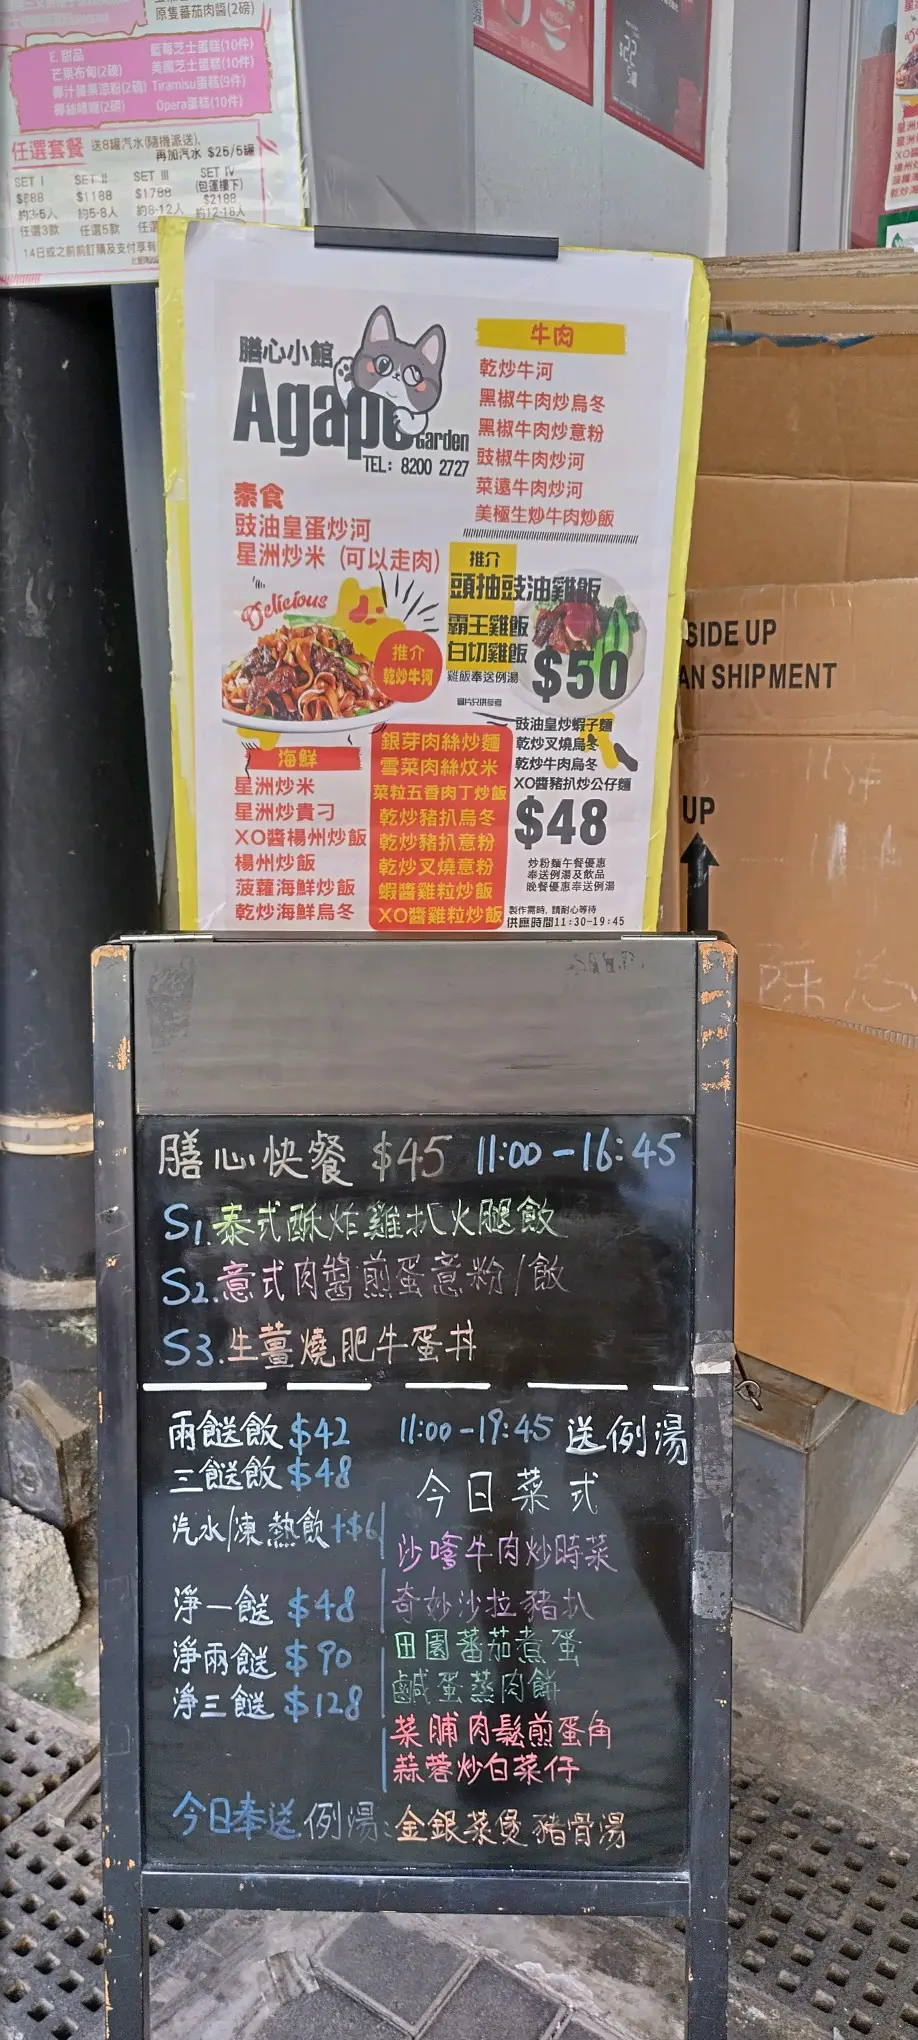 原隻蕃茄肉醬(2磅)
E.甜品
芒果布甸(2磅)
椰汁
椰絲
藍莓芝士蛋糕(10件)
美國芝士蛋糕(10件)
Tiramisu蛋糕(9件)
Opera蛋糕(10件)
任選套餐 送8罐汽水(隨機派送),
再加汽水 $25/5罐
SET I SET II SET III SET IV
(包運樓下)
$888 $1188 $1788 $2188
約3-5人 約5-8人 約8-12人 約12-16人
任選3款 任選5款 任選
膳心小館
Agape Garden
TEL: 8200 2727
素食
豉油皇蛋炒河
星洲炒米 (可以走肉)
牛肉
乾炒牛河
黑椒牛肉炒烏冬
黑椒牛肉炒意粉
豉椒牛肉炒河
菜遠牛肉炒河
美極生炒牛肉炒飯
Delicious
推介
乾炒牛河
推介
頭抽豉油雞飯
霸王雞飯
白切雞飯
雞飯奉送例湯
$50
圖片只供參考
海鮮
星洲炒米
星洲炒貴刁
XO醬楊州炒飯
楊州炒飯
菠蘿海鮮炒飯
乾炒海鮮烏冬
銀芽肉絲炒麵
雪菜肉絲炆米
菜粒五香肉丁炒飯
乾炒豬扒烏冬
乾炒豬扒意粉
乾炒叉燒意粉
蝦醬雞粒炒飯
XO醬雞粒炒飯
豉油皇炒蝦子麵
乾炒叉燒烏冬
乾炒牛肉烏冬
XO醬豬扒炒公仔麵
$48
炒粉麵午餐優惠
奉送例湯及飲品
晚餐優惠奉送例湯
製作需時, 請耐心等待
供應時間11:30-19:45
SIDE UP
AN SHIPMENT
UP
膳心快餐 $45 11:00-16:45
S1.泰式酥炸雞扒火腿飯
S2.意式肉醬煎蛋意粉/飯
S3.生薑燒肥牛蛋丼
兩餸飯 $42 11:00-19:45 送例湯
三餸飯 $48
汽水/凍熱飲+$6
淨一餸 $48
淨兩餸 $90
淨三餸 $128
今日菜式
沙嗲牛肉炒時菜
奇妙沙拉豬扒
田園蕃茄煮蛋
鹹蛋蒸肉餅
菜脯肉鬆煎蛋角
蒜蓉炒白菜仔
今日奉送例湯:金銀菜煲豬骨湯